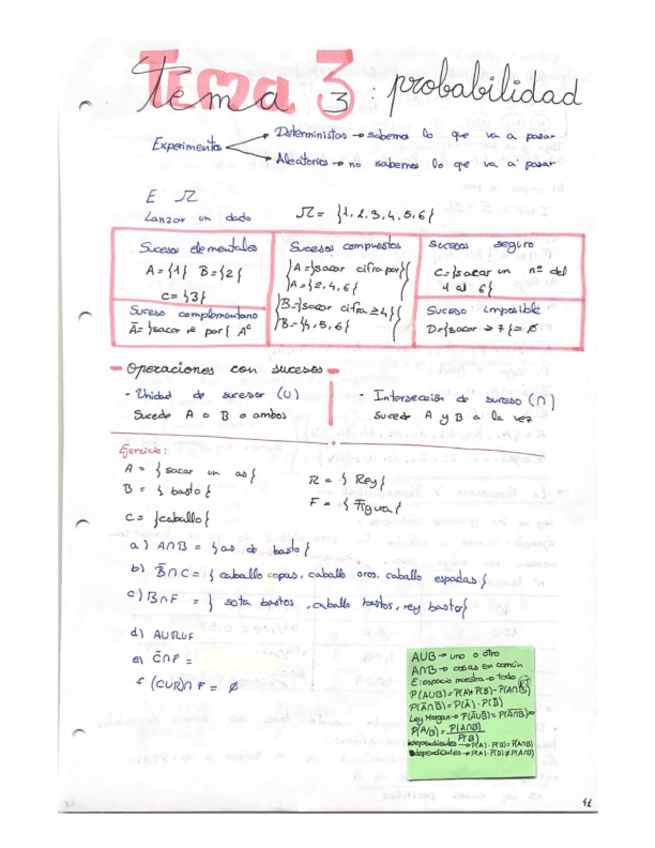 Tema 3: probabilidad
Experimentos
Deterministas → sabemos lo que va a pasar
Aleatorios → no sabemos lo que va a pasar
E Ω
Lanzar un dado Ω = {1, 2, 3, 4, 5, 6}
Sucesos elementales
A = {1} B = {2}
C = {3}
Suceso complementario
Ā = {sacar nº par} Aᶜ
Sucesos compuestos
A = {sacar cifra par}
A = {2, 4, 6}
B = {sacar cifra ≥ 4}
B = {4, 5, 6}
Sucesos seguro
C = {sacar un nº del
1 al 6}
Suceso imposible
D = {sacar > 7} = ∅
- Operaciones con sucesos -
- Unidad de sucesor (U)
Sucede A o B o ambos
- Intersección de suceso (∩)
Sucede A y B a la vez
Ejercicio:
A = {sacar un as}
B = {basto}
C = {caballo}
R = {Rey}
F = {Figura}
a) A∩B = {as de basto}
b) B̄∩C = {caballo copas, caballo oros, caballo espadas}
c) B∩F = {sota bastos, caballo bastos, rey bastos}
d) AURUF
e) C̄∩F =
f (CUR)∩F = ∅
AUB → uno o otro
A∩B → cosas en común
E: espacio muestra → todo
P(AUB) = P(A) + P(B) - P(A∩B)
P(Ā∩B̄) = P(Ā) · P(B̄)
Ley Morgan → P(ĀUB̄) = P(A∩B)
P(A/B) = P(A∩B) / P(B)
independientes → P(A) · P(B) = P(A∩B)
dependientes → P(A) · P(B) ≠ P(A∩B)
41